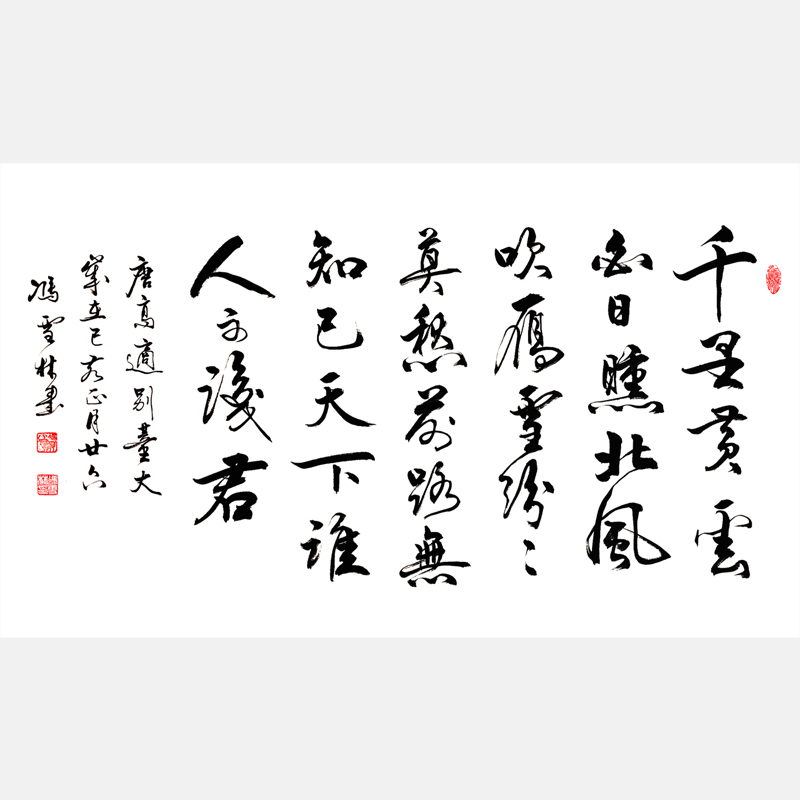 千里黄雲
白日曛北風
吹雁雪紛〻
莫愁前路無
知己天下誰
人不識君
唐高適別董大
歲在己亥正月廿六
馮雪林書